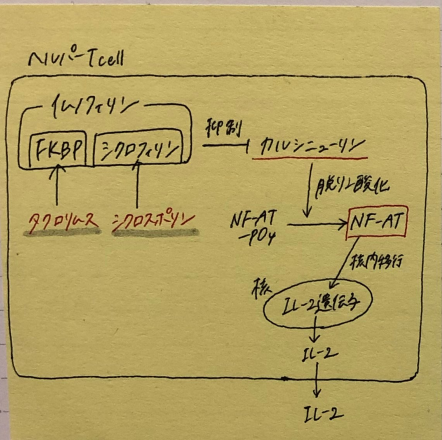 ヘルパーTcell
イムノフィリン
FKBP
シクロフィリン
抑制
カルシニューリン
脱リン酸化
タクロリムス
シクロスポリン
NF-AT
-PO4
NF-AT
核内移行
核
IL-2遺伝子
IL-2
IL-2